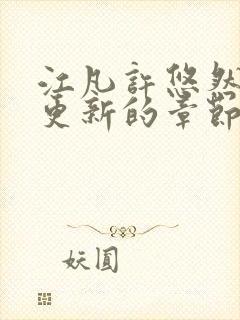 江凡許悠然
更新的章節
妖圓